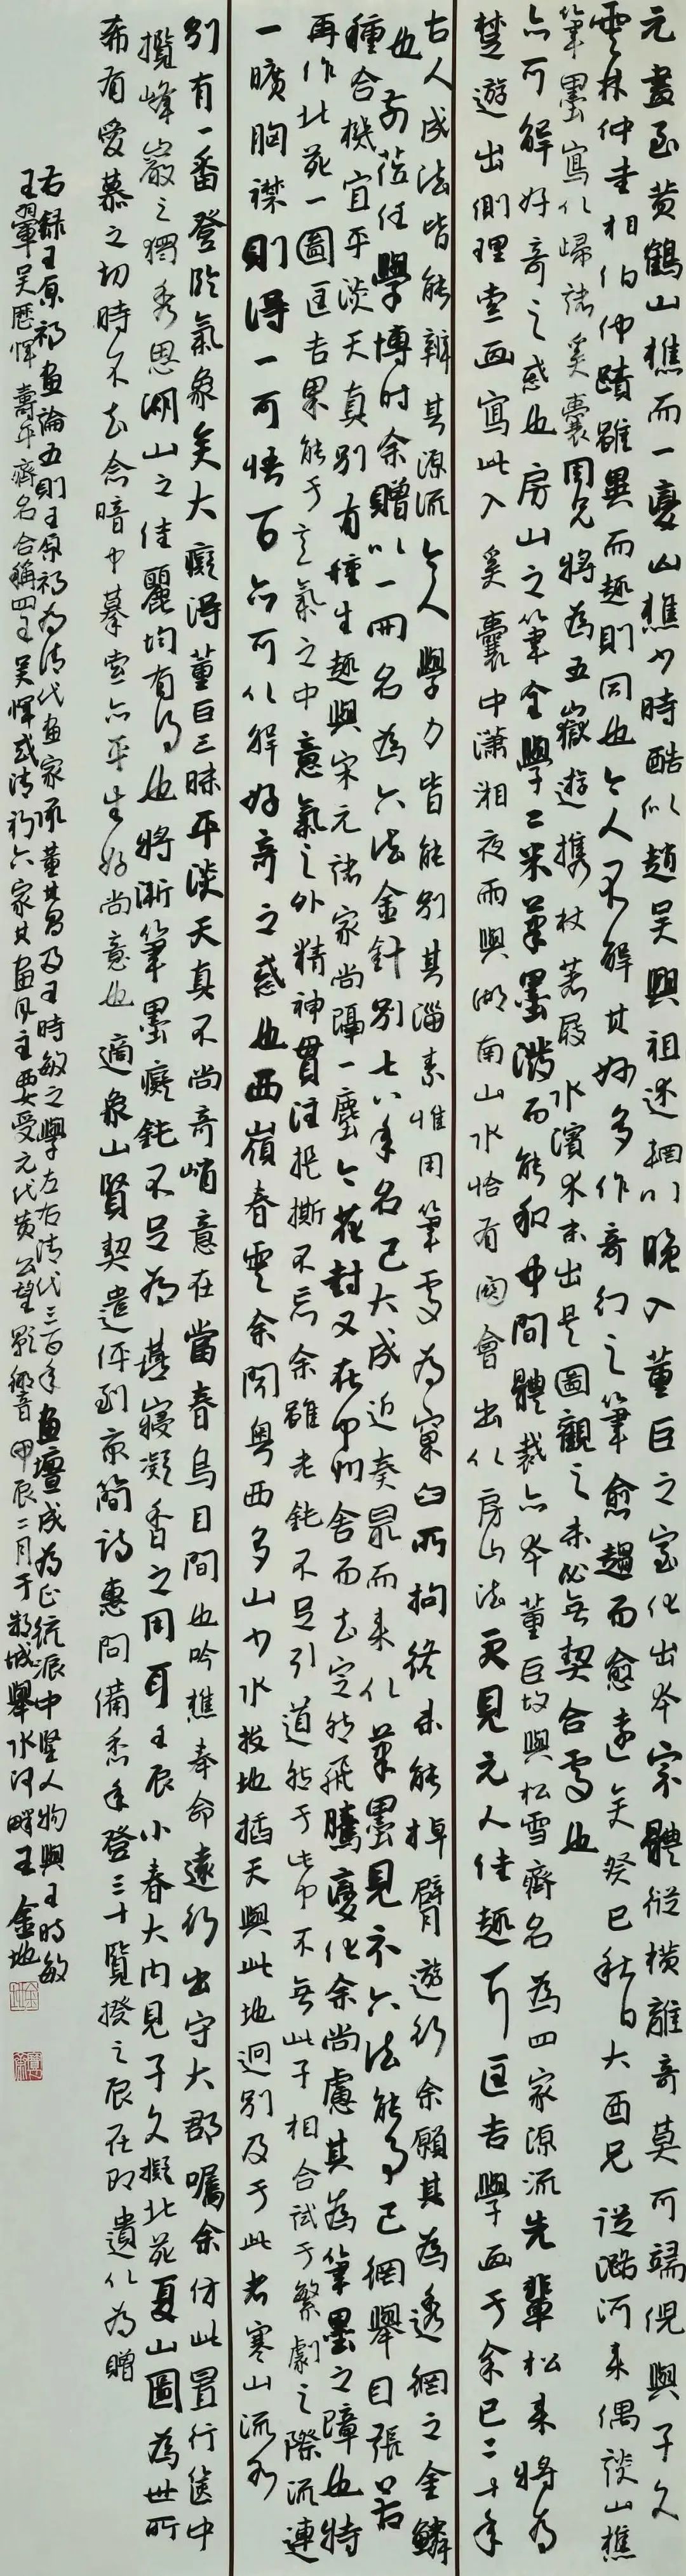 元畫至黄鶴山樵而一變山樵少時酷似趙吴興祖述輞川晚入董巨之室化出本宗體縱横離奇莫可端倪與子久
雲林仲圭相伯仲蹟雖異而趣則同也今人不解其妙多作奇幻之筆愈趨而愈遠矣癸巳秋日大酉兄從潞河来偶談山樵
筆墨寫以歸諸奚囊同兄將為五嶽遊携杖著屐水濱木末出是圖觀之未必無契合處也
亦可解好奇之惑也房山之筆全學二米筆墨潑而能和中間體裁亦本董巨故與松雪齊名為四家源流先輩松来將為
楚遊出側理索画寫此入奚囊中瀟湘夜雨與湖南山水恰有闗會出以房山法更見元人佳趣耳匡吉學画于余已二十年
古人成法皆能辨其源流今人學力皆能别其淄素惟用筆處為窠臼所拘終未能掉臂遊行余願其為透網之金鱗
也前莅任學博时余贈以一冊名為六法金針别七八年名已大成近奏最而来以筆墨見示六法能事已網舉目張若
種合機宜平淡天真别有種生趣與宋元諸家尚隔一塵今花封又在中州舍而去定能飛騰變化余尚慮其為筆墨之障也特
再作北苑一圖匡吉果能于意氣之中意氣之外精神貫注提撕不忘余雖老鈍不足引道然于此中不無此子相合試于繁劇之際流連
一曠胸襟則得一可悟百亦可以解好奇之惑也西嶺春雲余聞粤西多山少水拔地插天與此地迥别及于此者寒山流水
别有一番登臨氣象矣大癡得董巨三昧平淡天真不尚奇峭意在當春烏目間也吟樵奉命遠行出守大郡囑余仿此置行篋中
攬峰巖之獨秀思湖山之佳麗均有得也將漸筆墨癡鈍不足為燕寢凝香之用耳壬辰小春大内見子久擬北苑夏山圖為世所
希有愛慕之切時不去念暗中摹索亦平生好尚意也適象山賢契遣伻到京簡詩惠問備悉年登三十覽揆之辰在即遺以為贈
右録王原祁画論五則王原祁為清代画家承董其昌及王時敏之學左右清代三百年画壇成為正統派中堅人物與王時敏
王翬吴歷惲壽平齊名合稱四王吴惲或清初六家其画風主要受元代黄公望影響甲辰二月于邾城舉水河畔王金地